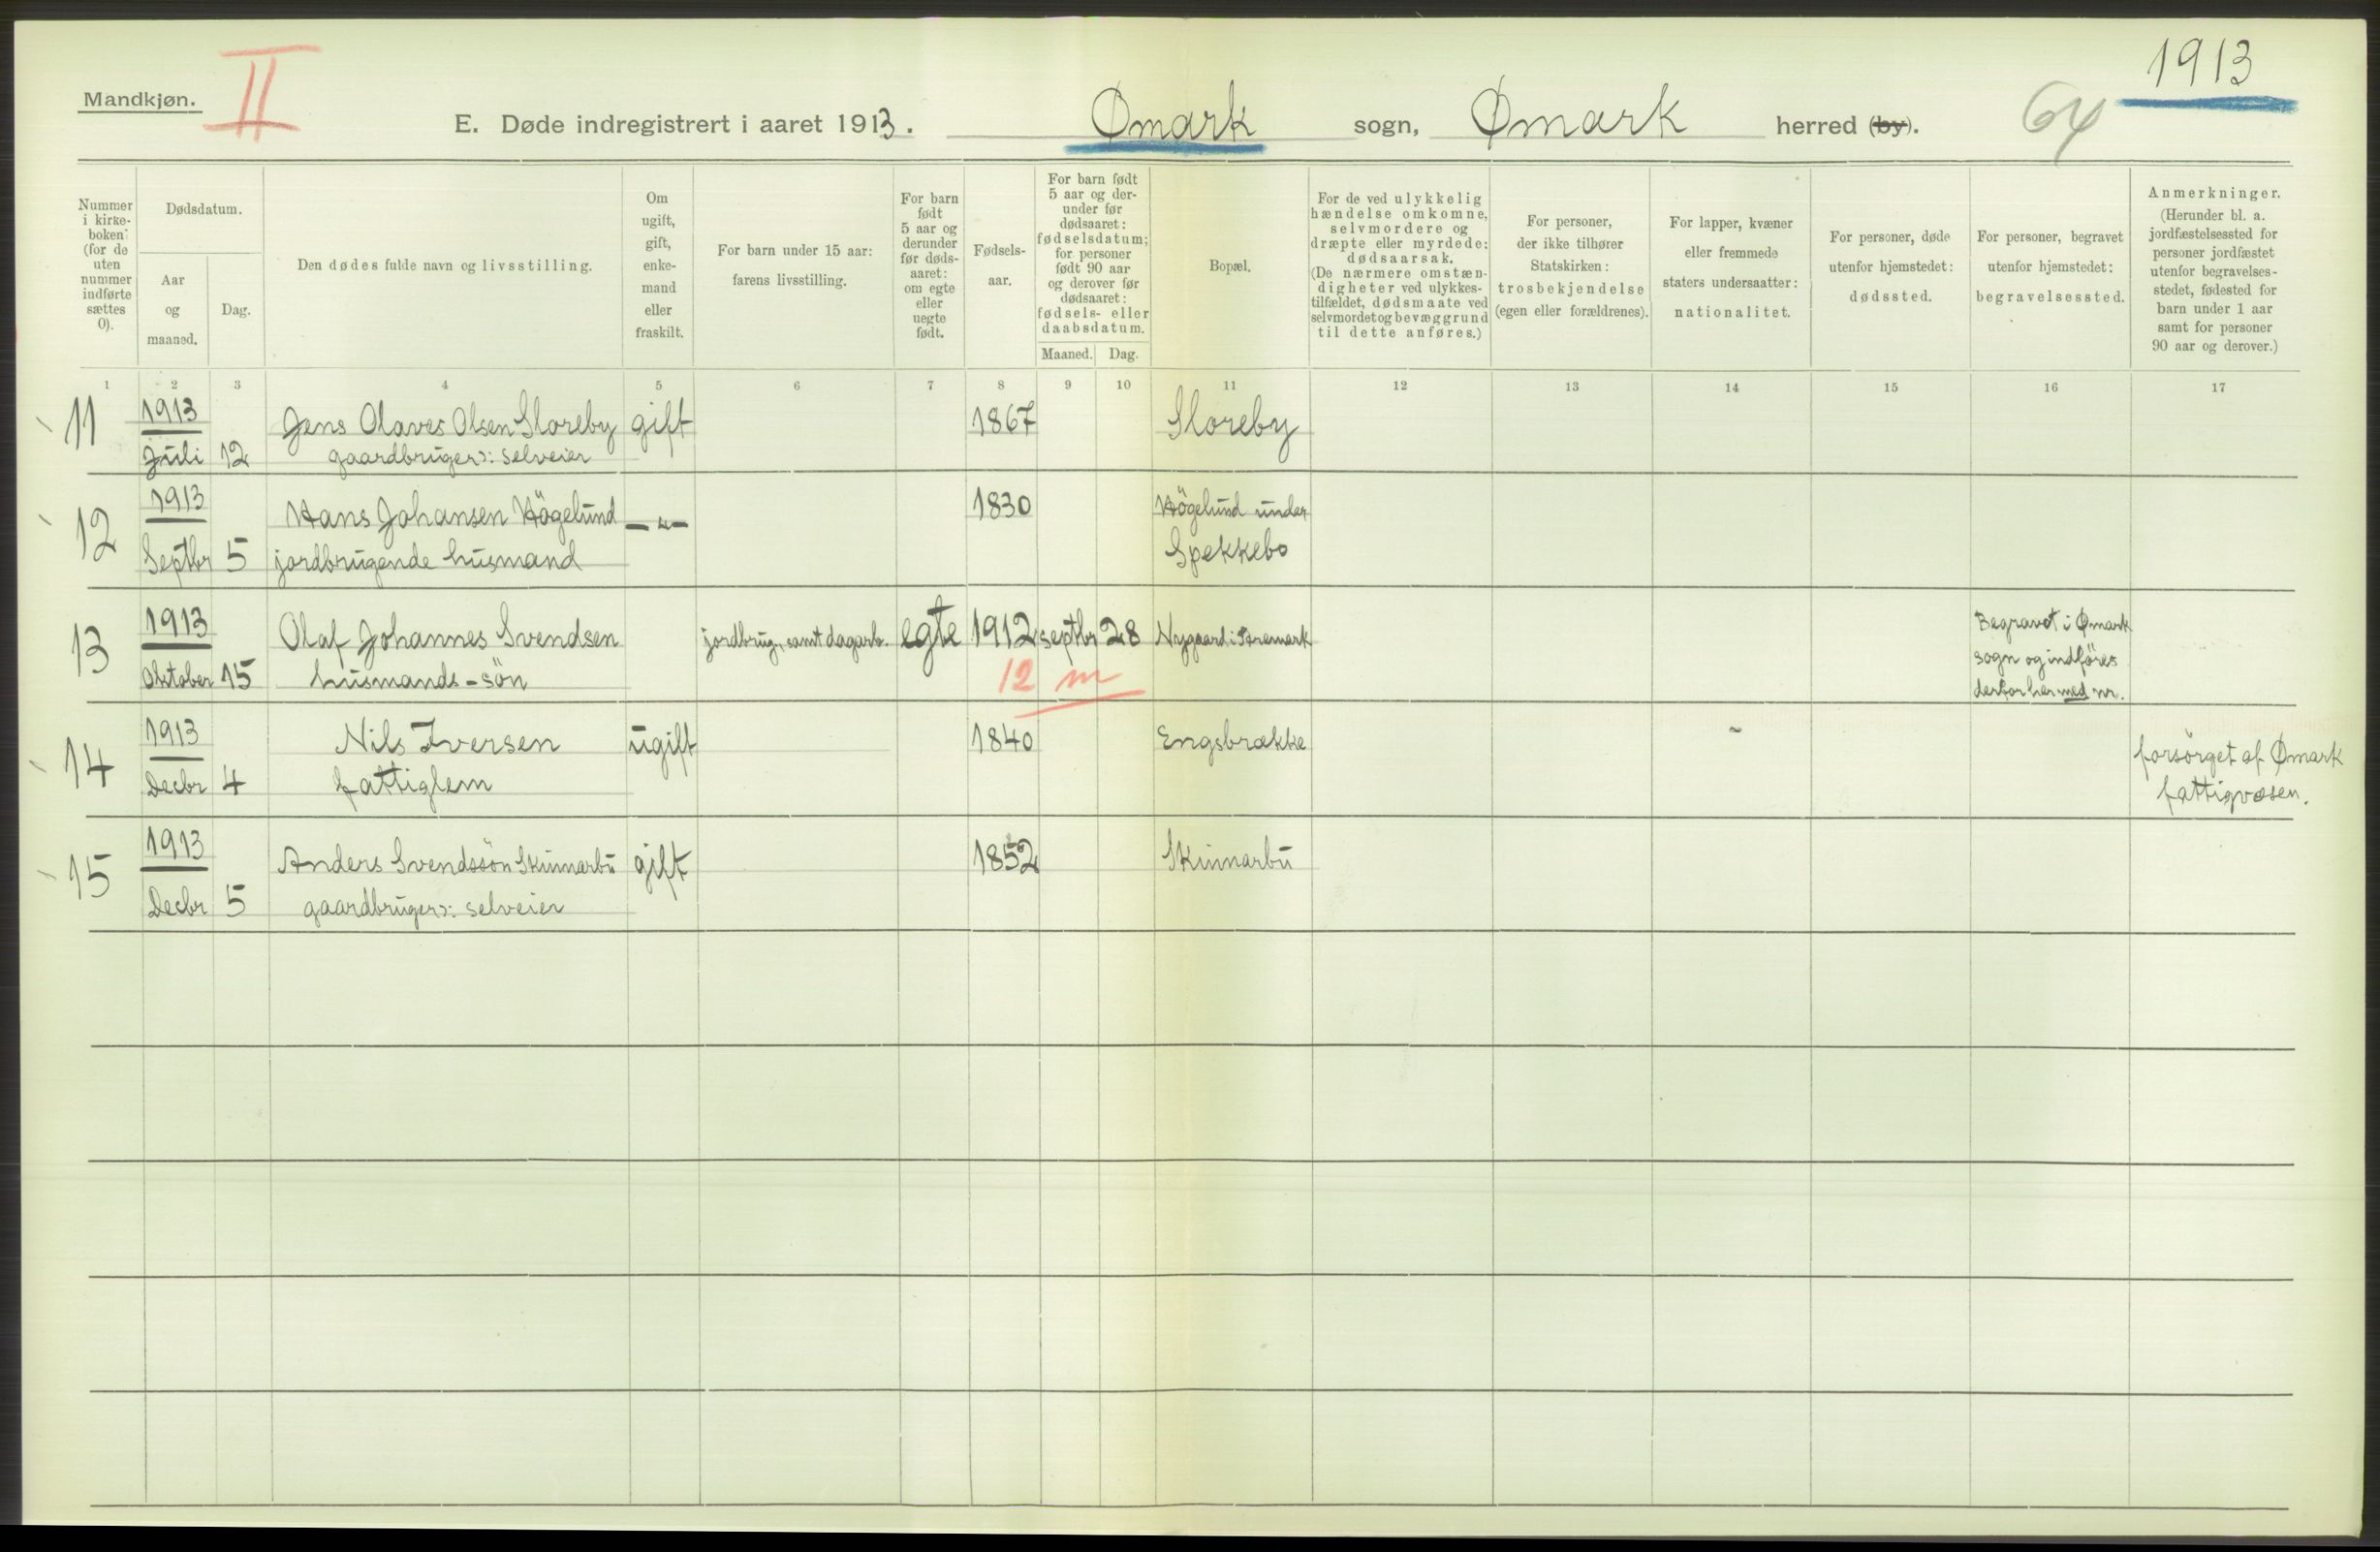 1913
Mandkjøn. II
E. Døde indregistrert i aaret 1913. Ømark sogn, Ømark herred (by). 64
Nummer i kirke- boken: (for de uten nummer indførte sættes 0).
Dødsdatum.
Aar og maaned.
Dag.
Den dødes fulde navn og livsstilling.
Om ugift, gift, enke- mand eller fraskilt.
For barn under 15 aar: farens livsstilling.
For barn født 5 aar og derunder før døds- aaret: om egte eller uegte født.
Fødsels- aar.
For barn født 5 aar og der- under før dødsaaret: fødselsdatum; for personer født 90 aar og derover før dødsaaret: fødsels- eller daabsdatum.
Maaned. Dag.
Bopæl.
For de ved ulykkelig hændelse omkomne, selvmordere og dræpte eller myrdede: dødsaarsak. (De nærmere omstæn- digheter ved ulykkes- tilfældet, dødsmaate ved selvmordet og bevæggrund til dette anføres.)
For personer, der ikke tilhører Statskirken: trosbekjendelse (egen eller forældrenes).
For lapper, kvæner eller fremmede staters undersaatter: nationalitet.
For personer, døde utenfor hjemstedet: dødssted.
For personer, begravet utenfor hjemstedet: begravelsessted.
Anmerkninger. (Herunder bl. a. jordfæstelsessted for personer jordfæstet utenfor begravelses- stedet, fødested for barn under 1 aar samt for personer 90 aar og derover.)
1 2 3 4 5 6 7 8 9 10 11 12 13 14 15 16 17
11 1913 Jens Olaves Olsen Sloreby gift 1867 Sloreby
Juli 12 gaardbruger ɔ: selveier
12 1913 Hans Johansen Högelund —"— 1830 Högelund under
Septbr 5 jordbrugende husmand Spekkebo
13 1913 Olaf Johannes Svendsen jordbrug. samt dagarb. egte 1912 septbr 28 Nygaard i Aremark Begravet i Ømark
sogn og indføres
Oktober 15 husmands-sön 12 m derfor her med nr.
14 1913 Nils Iversen ugift 1840 Engsbrække forsörget af Ømark
Decbr 4 fattiglem fattigvæsen.
15 1913 Anders Svendssön Skinnarbu gift 1852 Skinnarbu
Decbr 5 gaardbruger ɔ: selveier